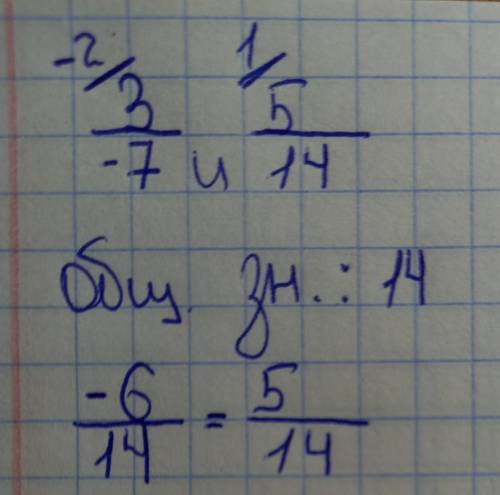 -2/ 1/
3/-7 и 5/14
Общ. зн.: 14
-6/14 = 5/14